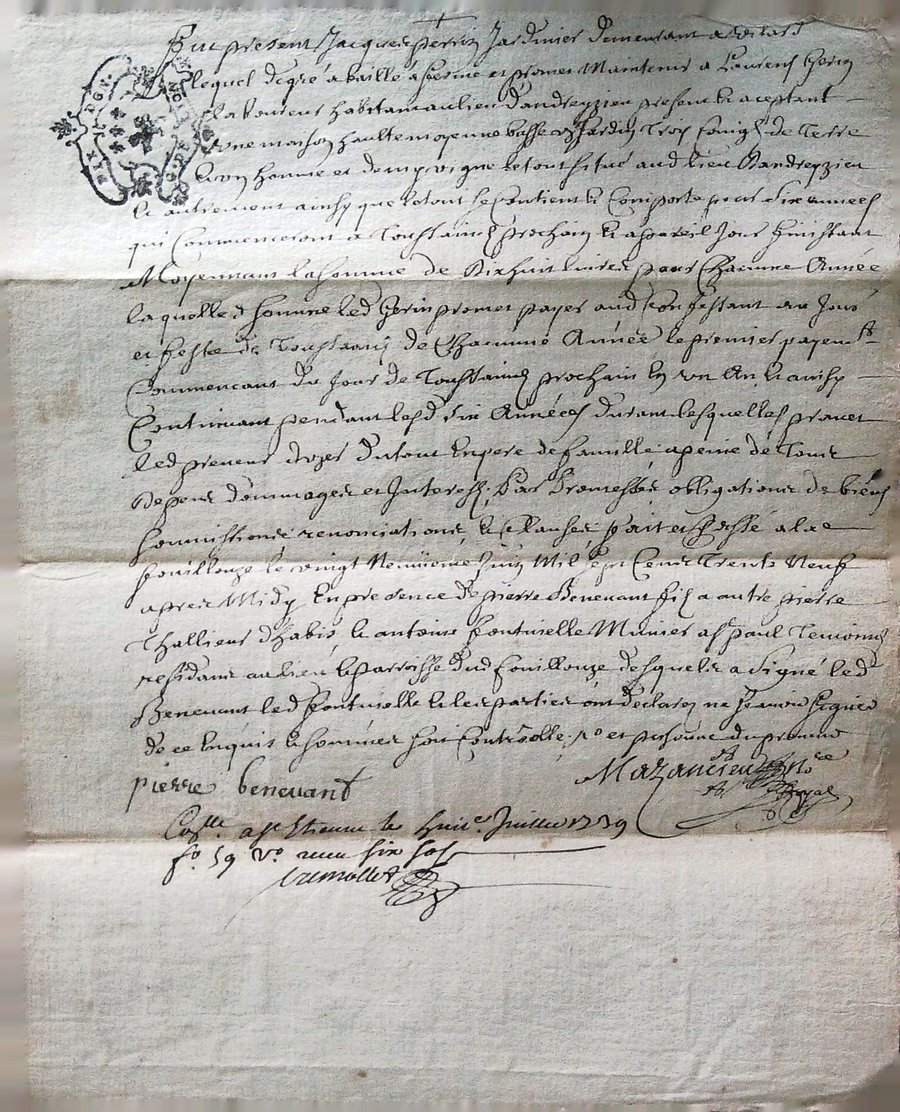 Fut present Jacques perrin Jardinier demeurant a
lequel degré a baillé a ferme et promet Maintenir a Laurens Gerin
laboureur habitant au lieu d'andreyzieu present & aceptant
une maison haulte moyenne basse & Jardin Trois de Terre
et demy vigne le tout situé aud lieu dandreyzieu
& autrement ainsy que le tout se Contient & Comporte pour six années
qui Commenceront a Toussaincts prochain & a pareil Jour finissant
Moyennant la somme de dixhuit livres pour Chacune Année
laquelle d somme led Gerin promet payer aud perrin aux Jour
et feste de Toussaincts de Chacune Année le premier payemt
Commencant du Jour de Toussaincts prochain en un An & ainsy
Continuant pendant lesd six Années durant lesquelles promet
led preneur d'user du tout en pere de famille a peine de Tous
depens dommages et Interests, par promesses obligations de biens
soumissions renonciations, & Clauses fait et passé a la
fouillouze le vingt Neuvieme Juin Mil sept Cent Trente Neuf
apres Midy En presence de pierre Benevant fils a autre pierre
Thallieur d'habis & antoine fontuielle Munier a st paul Temoins
residans au lieu & parroisse dud fouillouze desquels a signé led
Benevant led fontuielle & les parties ont declaré ne scavoir signer
de ce Enquis & sommés soit Controolle
pierre benevant
Mazancieu Nore
Royal
Collé a st Etienne le huit Juillet 1739
fo 59 vo recu six sols